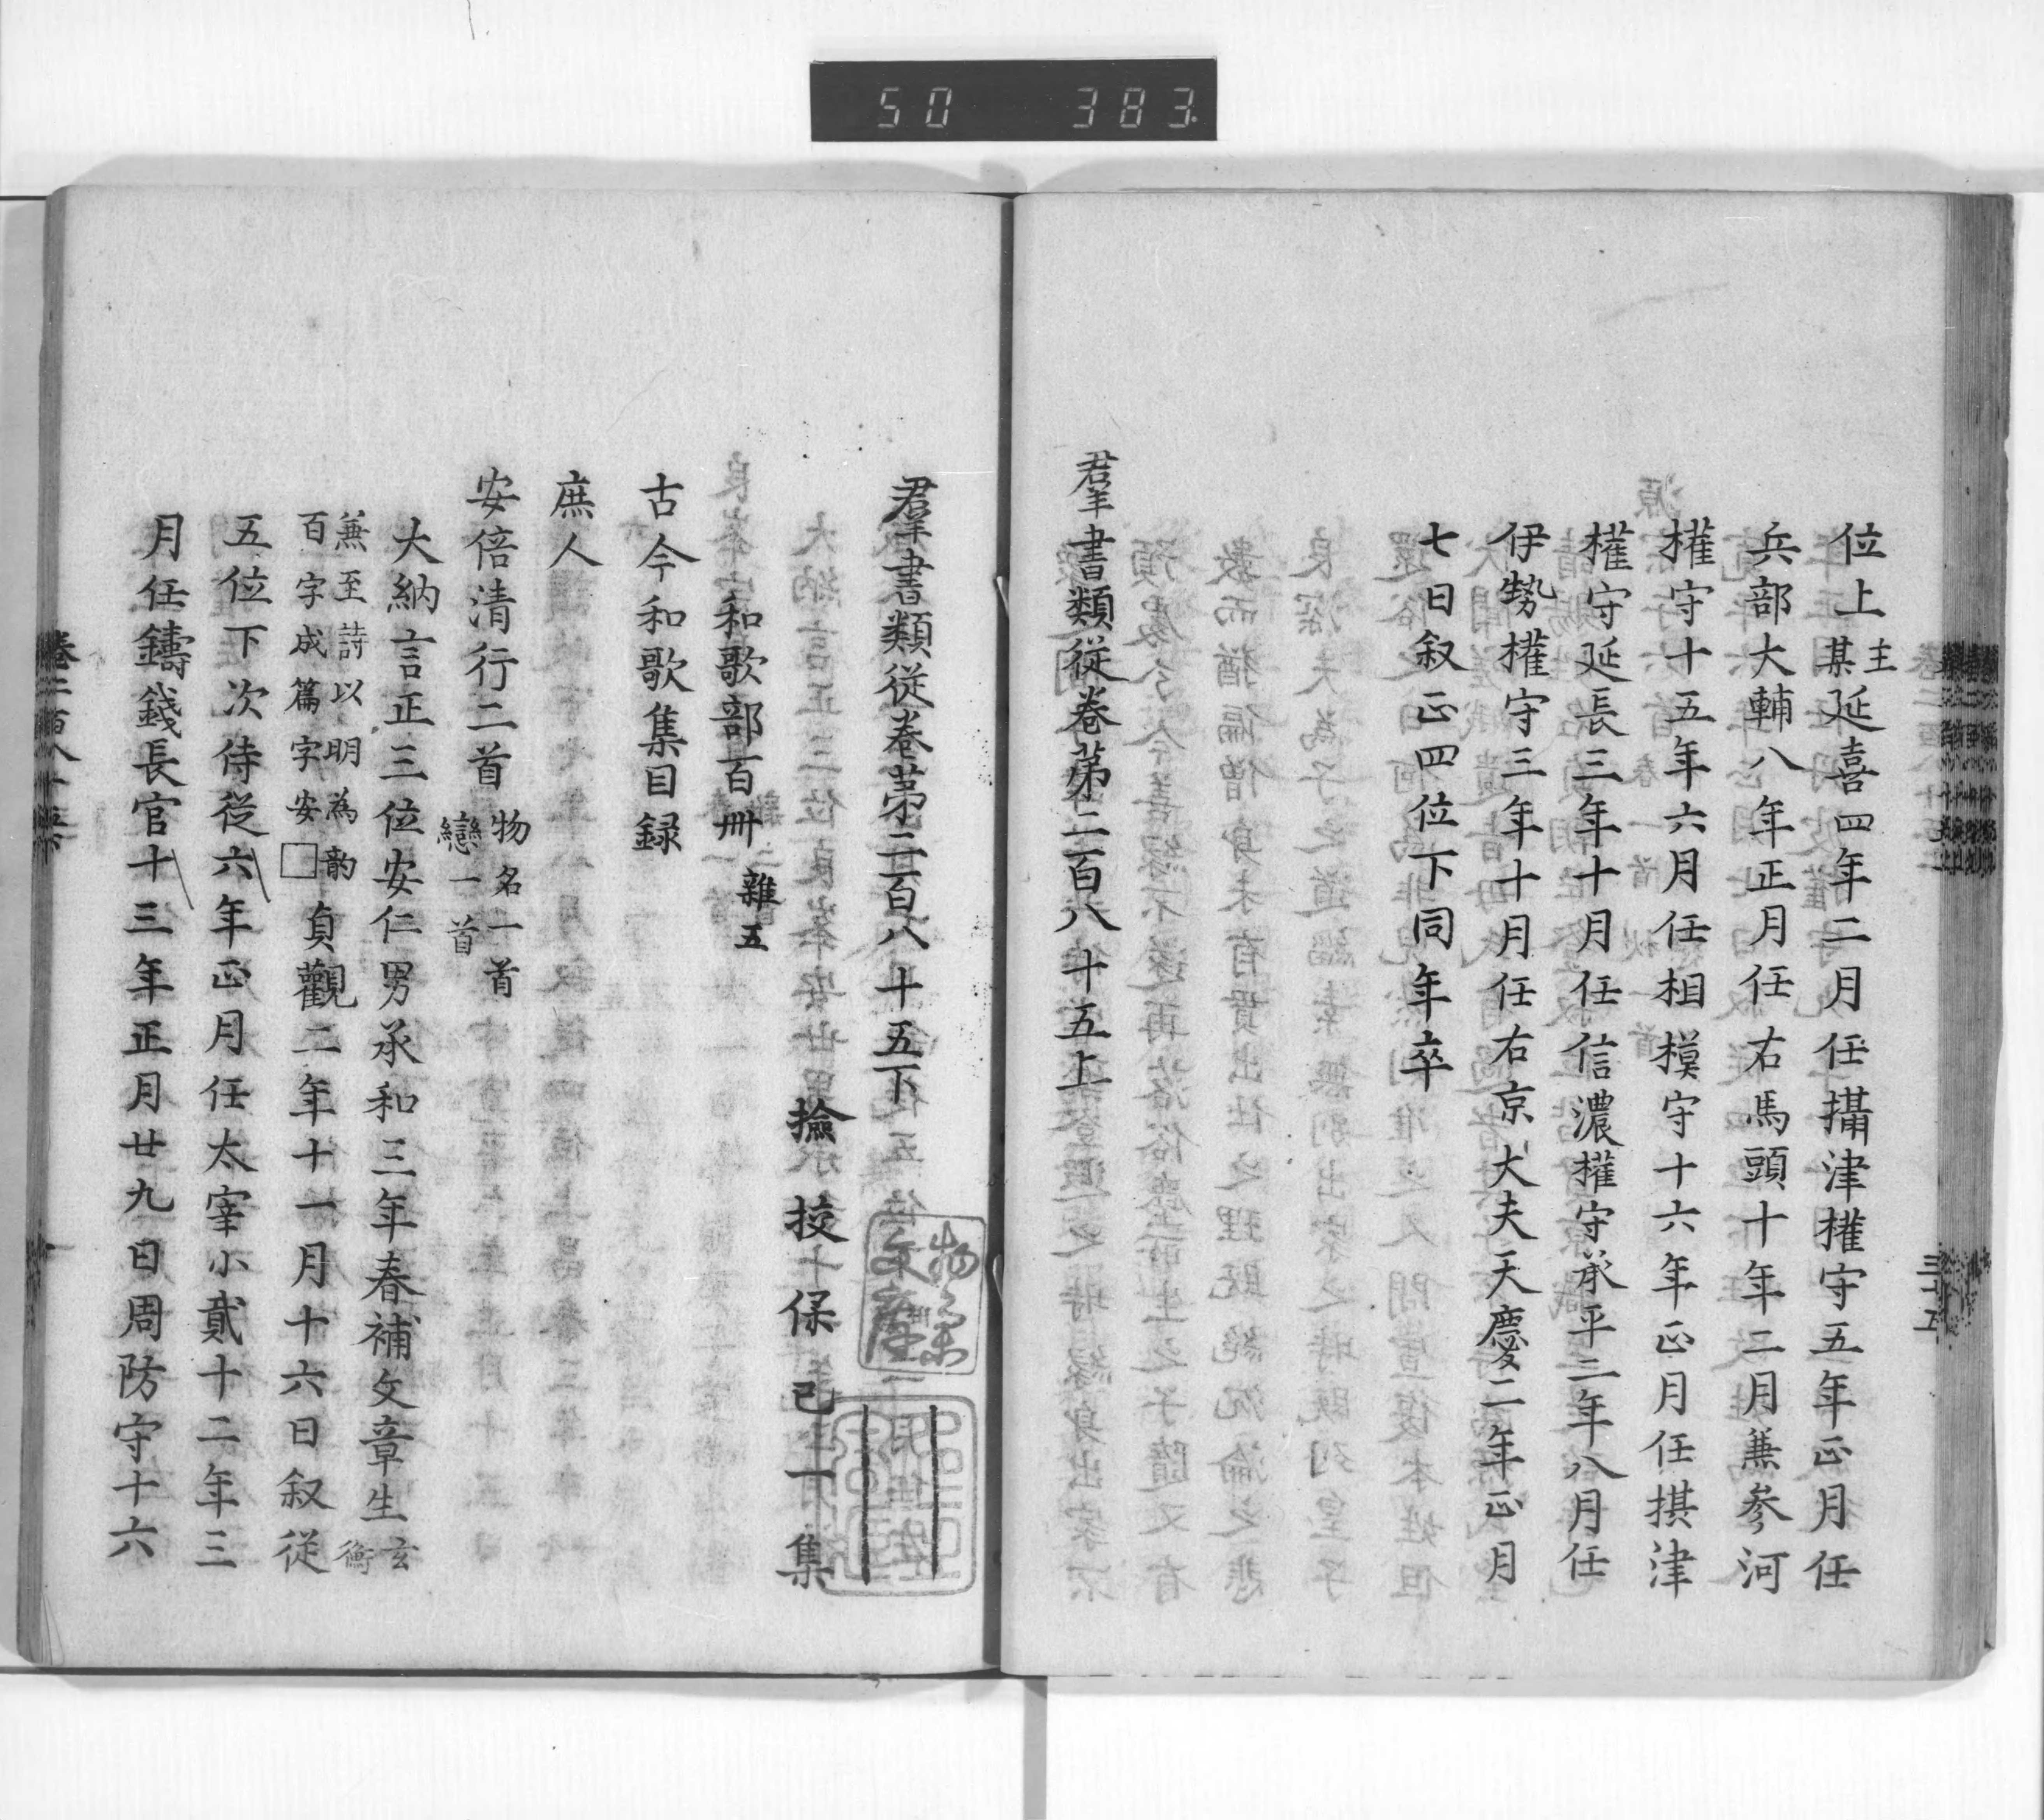 50 383
位上某主延喜四年二月任攝津權守五年正月任
兵部大輔八年正月任右馬頭十年二月兼參河
權守十五年六月任相摸守十六年正月任摂津
權守延長三年十月任信濃權守承平二年八月任
伊勢權守三年十月任右京大夫天慶二年正月
七日叙正四位下同年卒
羣書類従巻第二百八十五上
三七五
羣書類従巻第二百八十五下
撿挍保己一集
和歌部百卅 雜五
古今和歌集目録
庶人
安倍清行二首 物名一首 戀一首
大納言正三位安仁男承和三年春補文章生 玄衛
兼至詩以明為韵
百字成篇字安□
貞觀二年十一月十六日叙従
五位下次侍従六年正月任太宰小貳十二年三
月任鑄錢長官十三年正月廿九日周防守十六
巻二百八十五下